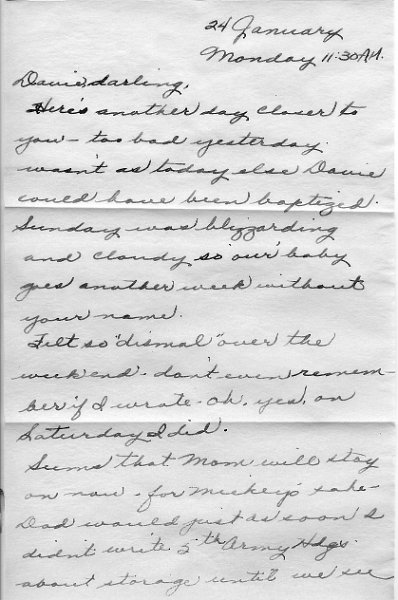 24 January
Monday 11:30 AM.
Davie darling,
Here's another day closer to
you - too bad yesterday
wasn't as today else Davie
could have been baptized.
Sunday was blizzarding
and cloudy so our baby
goes another week without
your name.
Felt so "dismal" over the
week end - don't even remem-
ber if I wrote - oh, yes, on
Saturday I did.
Seems that Mom will stay
on now - for Mickey's sake -
Dad would just as soon I
didn't write 5th Army Hdqs
about storage until we see